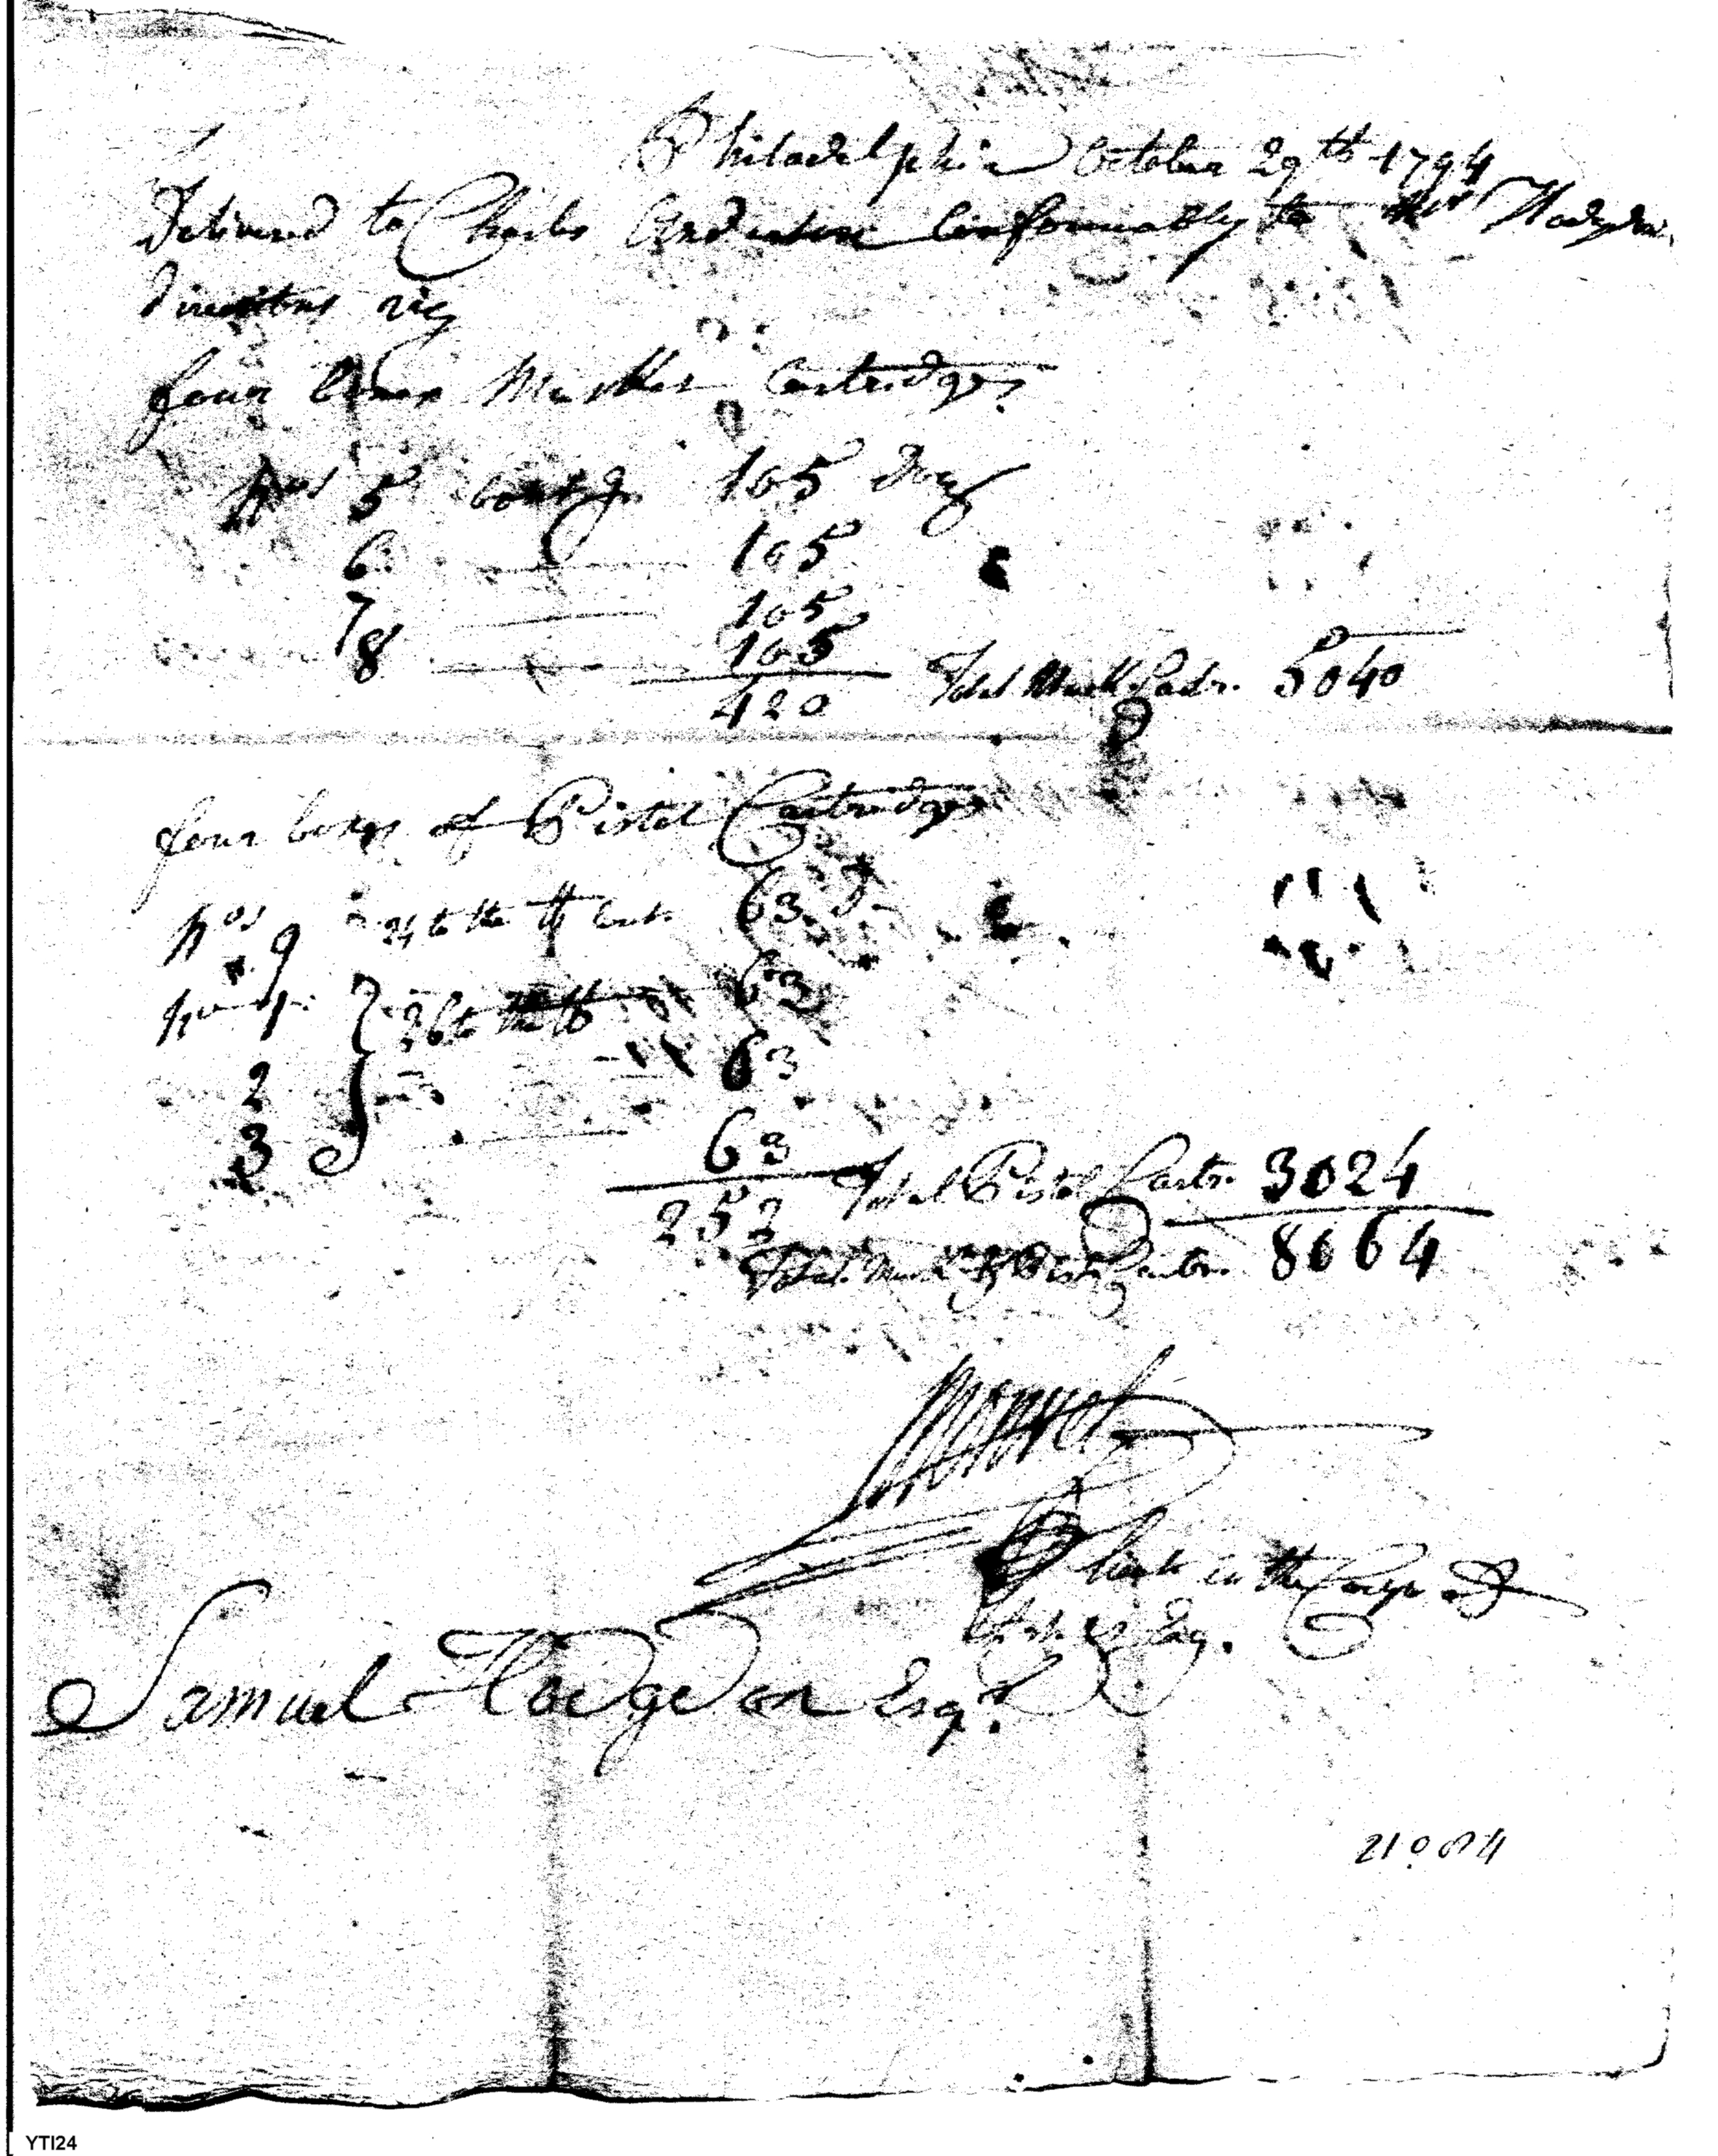 Philadelphia October 29th 1794
Delivered to Charles Anderson Conformably to Mr Hodgdon
directions viz
four boxes Musket Cartridges
Nos 5 containg 105 Doz
6 105
7 105
8 105
420 Total Musk Cartr. 5040
four boxes of Pistol Cartridges
Nos 9 24 to the lb Cart. 63 D.
No 1 26 to the lb 63
2 63
3 63
252 Total Pistol Cartr. 3024
Total Musk & Pistol Cartr. 8064
in the Corps of
Samuel Hodgdon Esqr.
YTI24